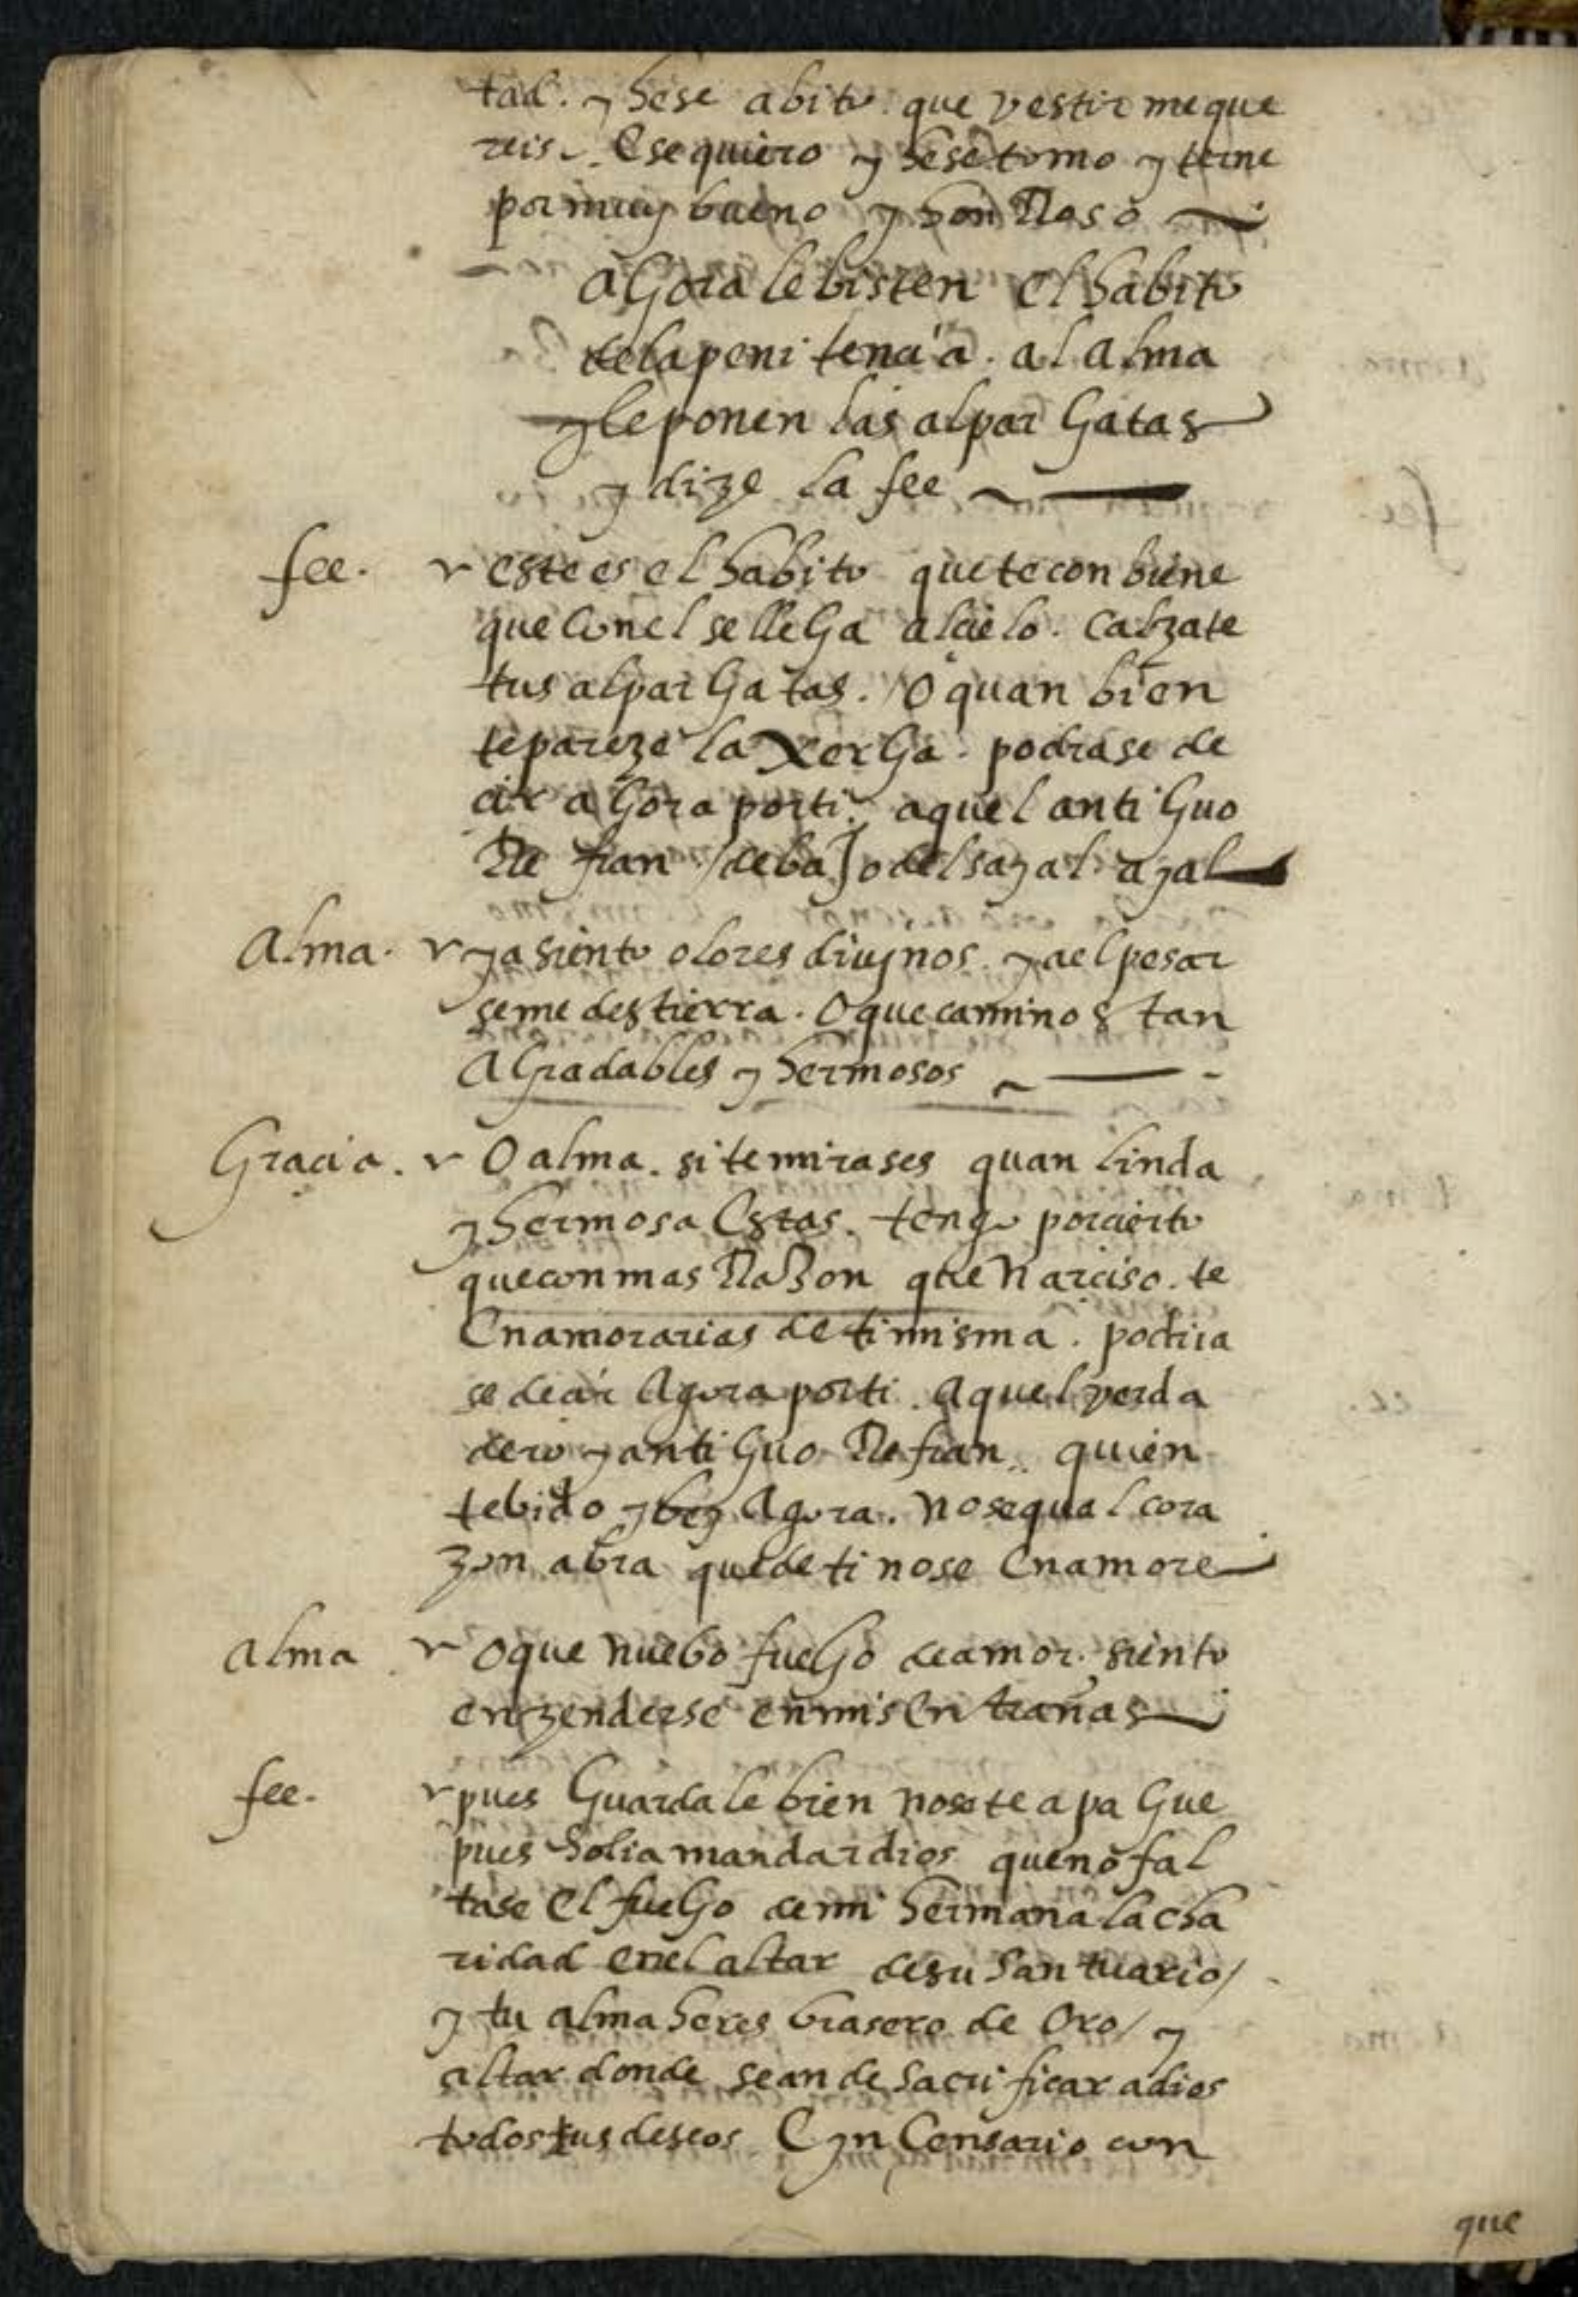 tad. y hese abito que vestir me que
reis. Ese quiero y hese tomo y terne
por muy bueno y honRroso
aGora le bisten el habito
de la penitencia. al alma
y le ponen las alparGatas
y dize la fee
fee. este es el habito que te conbiene
que con el se lleGa al cielo. calzate
tus alparGatas. O quan bien
te pareze la XerGa. podrase de
cir aGora por ti. aquel antiGuo
Refran / debaJo del sayal ay al
Alma. ya siento olores diuynos. ya el pesar
se me destierra. O que caminos tan
aGradables y hermosos
Gracia. O alma. si te mirases quan linda
y hermosa Estas. tengo por cierto
que con mas RaZon que Narciso. te
Enamorarias de ti misma. podria
se decir Agora por ti. Aquel verda
dero y antiGuo Refran. quien
te bido y bey Agora. No se qual cora
zon abra que de ti no se Enamore
Alma O que nuebo fueGo de amor. siento
enzenderse en mis Entrañas
fee. pues Guardale bien no se te apaGue
pues solia mandar dios que no fal
tase El fueGo de mi hermana la cha
ridad en el altar de su santuario /
y tu alma heres brasero de Oro / y
altar donde se an de sacrificar a dios
todos tus deseos. E yncensario con
que